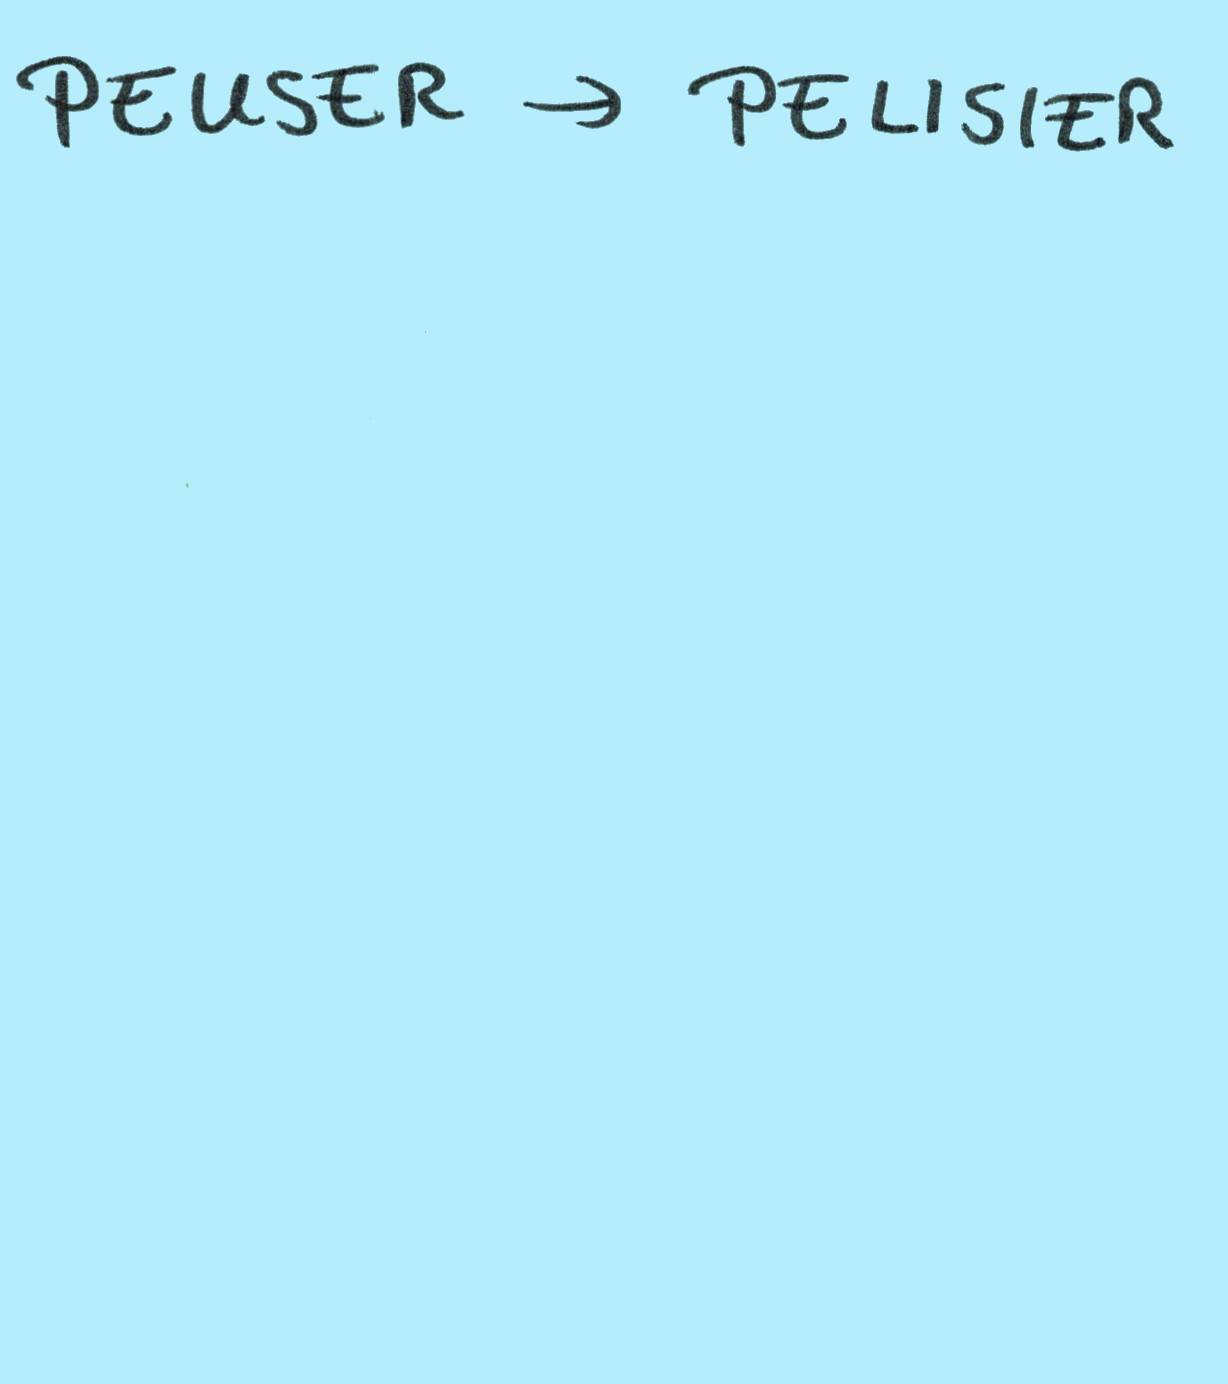 PEUSER → PELISIER